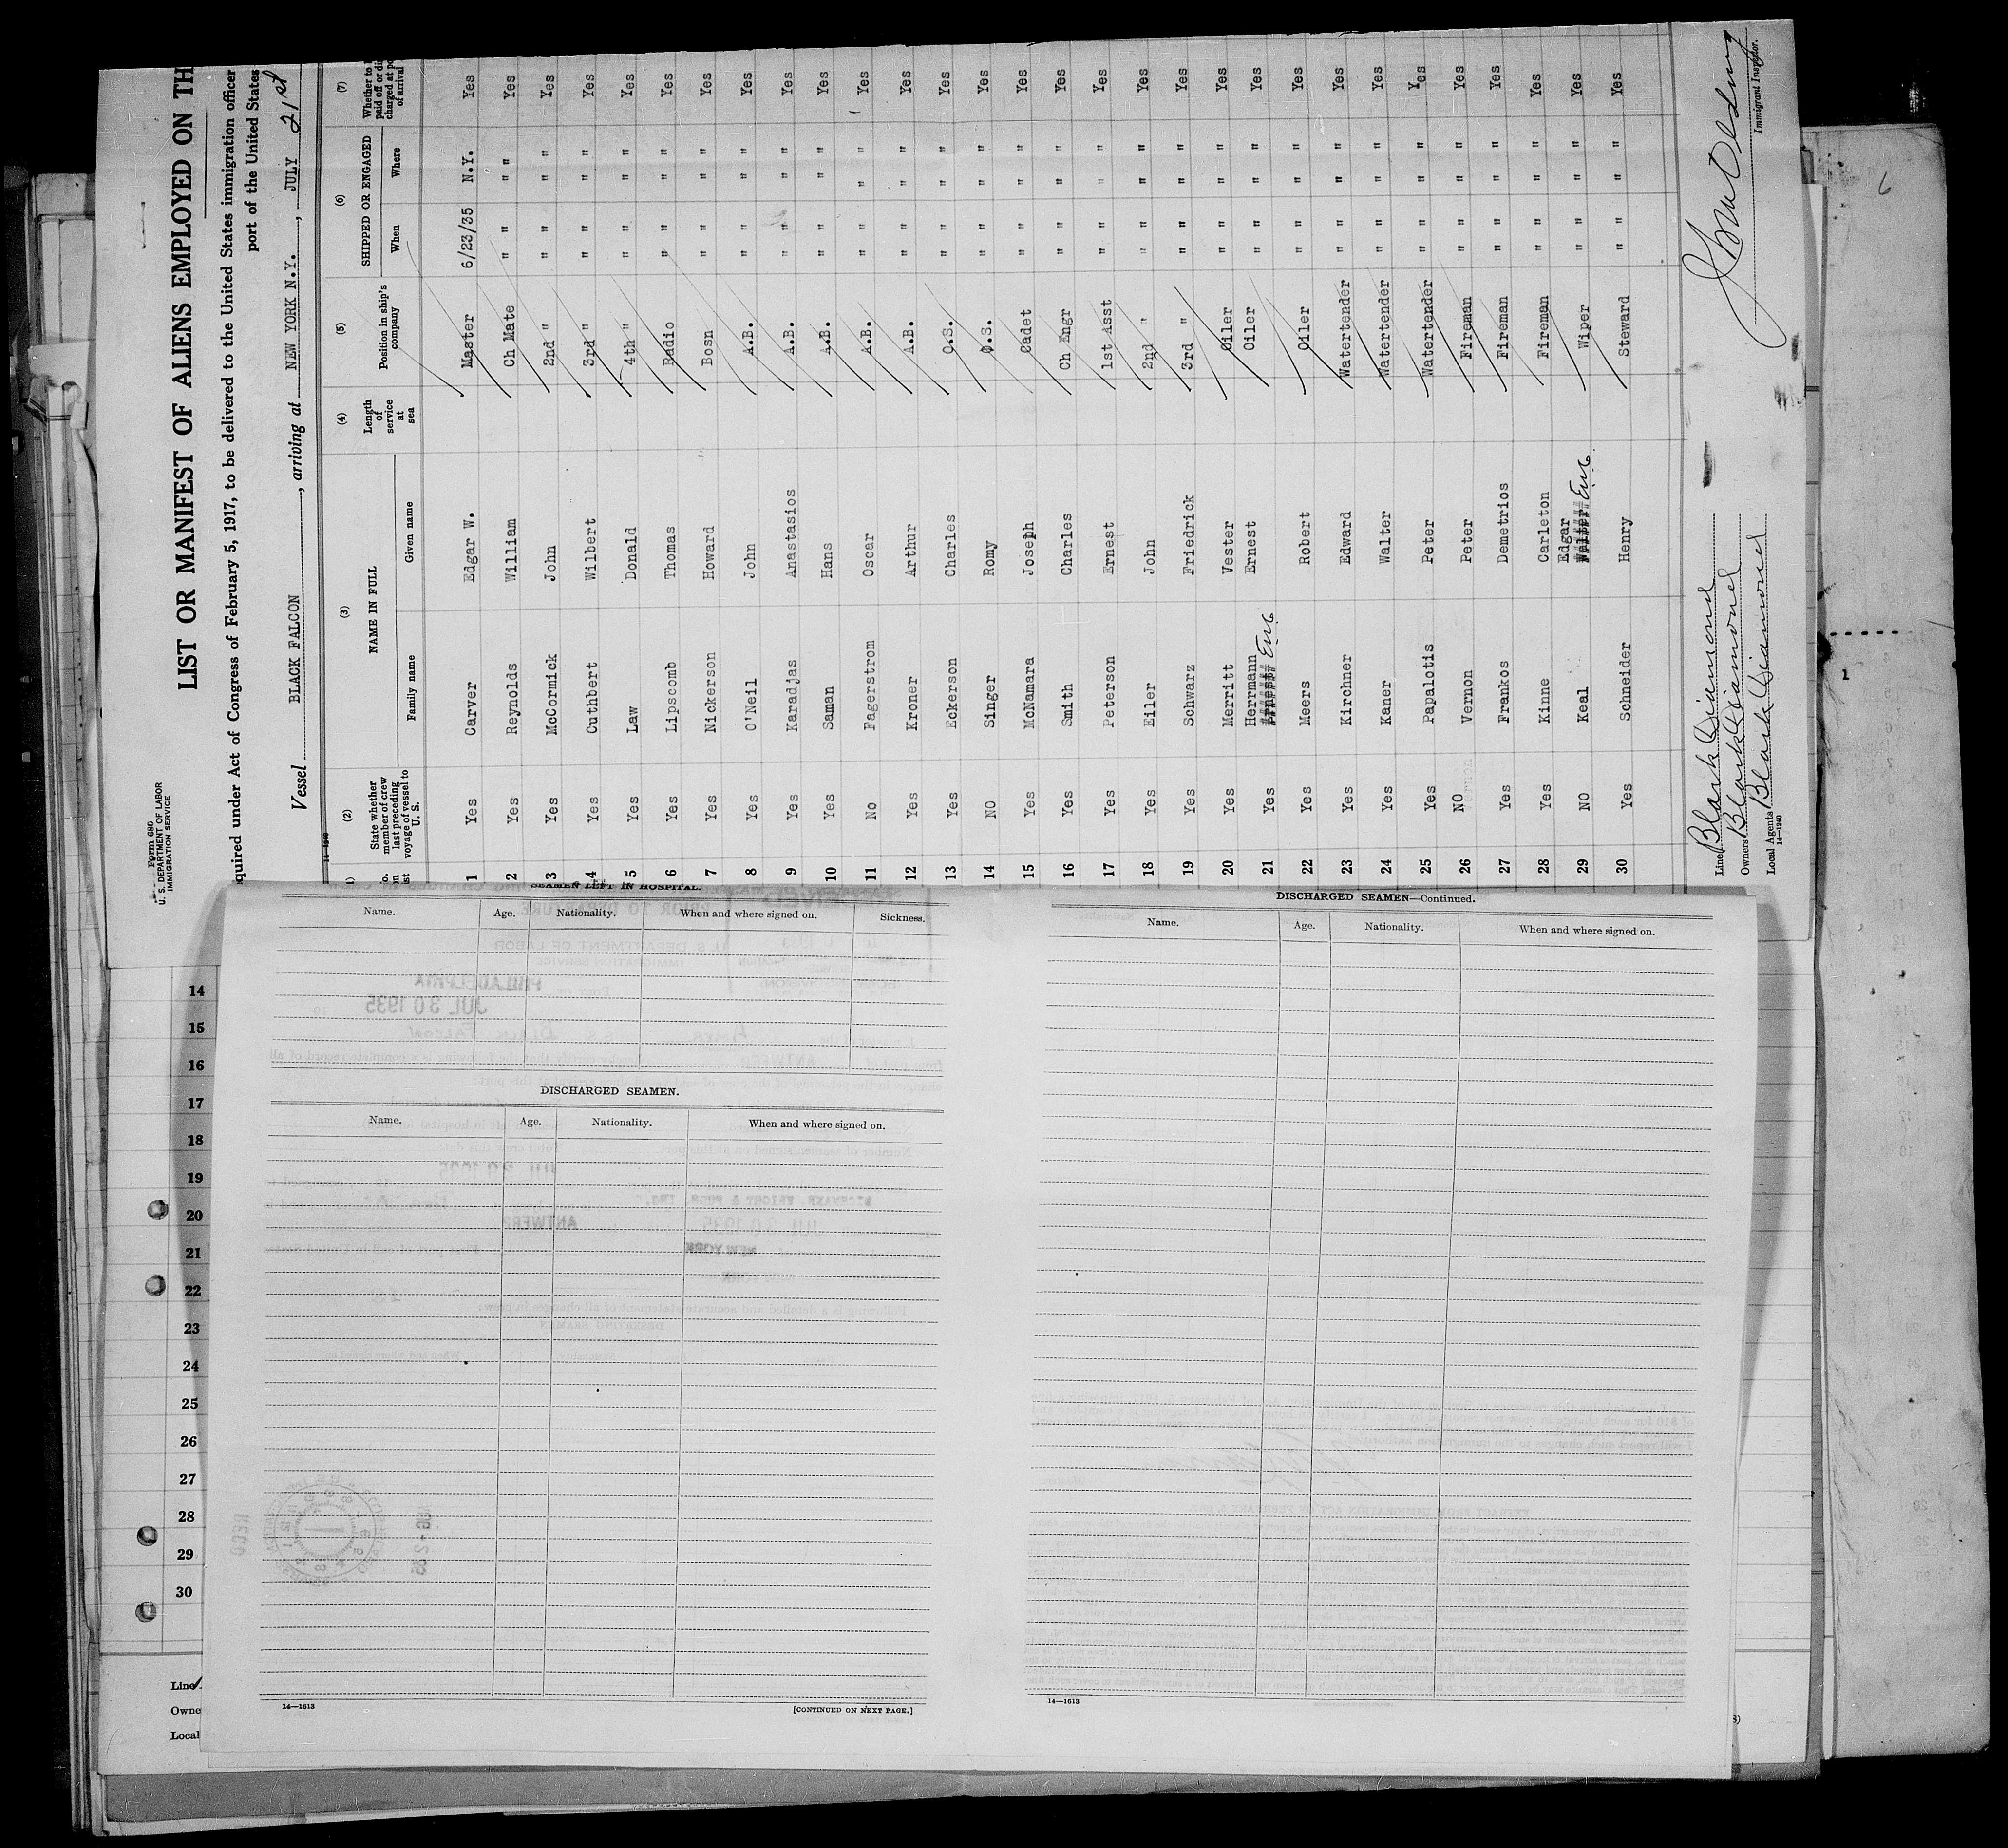 Form 680
U. S. DEPARTMENT OF LABOR
IMMIGRATION SERVICE
LIST OR MANIFEST OF ALIENS EMPLOYED ON TH
quired under Act of Congress of February 5, 1917, to be delivered to the United States immigration officer
port of the United States
Vessel BLACK FALCON, arriving at NEW YORK N.Y., JULY 21st
(2) (3) (4) (5) (6) (7)
State whether member of crew last preceding voyage of vessel to U. S.
NAME IN FULL
Family name Given name
Length of service at sea
Position in ship's company
SHIPPED OR ENGAGED
When Where
Whether to
paid off or di
charged at po
of arrival
1 Yes Carver Edgar W. Master 6/23/35 N.Y. Yes
2 Yes Reynolds William Ch Mate " " " " Yes
3 Yes McCormick John 2nd " " " " " Yes
4 Yes Cuthbert Wilbert 3rd " " " " " Yes
5 Yes Law Donald 4th " " " " " Yes
6 Yes Lipscomb Thomas Radio " " " " Yes
7 Yes Nickerson Howard Bosn " " " " Yes
8 Yes O'Neil John A.B. " " " " Yes
9 Yes Karadjas Anastasios A.B. " " " " Yes
10 Yes Saman Hans A.B. " " " " Yes
11 No Fagerstrom Oscar A.B. " " " " Yes
12 Yes Kroner Arthur A.B. " " " " Yes
13 Yes Eckerson Charles O.S. " " " " Yes
14 NO Singer Romy O.S. " " " " Yes
15 Yes McNamara Joseph Cadet " " " " Yes
16 Yes Smith Charles Ch Engr " " " " Yes
17 Yes Peterson Ernest 1st Asst " " " " Yes
18 Yes Eiler John 2nd " " " " " Yes
19 Yes Schwarz Friedrick 3rd " " " " " Yes
20 Yes Merritt Vester Oiler " " " " Yes
21 Yes Hermann Ernest Oiler " " " " Yes
22 Yes Meers Robert Oiler " " " " Yes
23 Yes Kirchner Edward Watertender " " " " Yes
24 Yes Kaner Walter Watertender " " " " Yes
25 Yes Papalotis Peter Watertender " " " " Yes
26 NO Vernon Peter Fireman " " " " Yes
27 Yes Frankos Demetrios Fireman " " " " Yes
28 Yes Kinne Carleton Fireman " " " " Yes
29 NO Keal Edgar Wiper " " " " Yes
30 Yes Schneider Henry Steward " " " " Yes
Line Black Diamond
Owners Black Diamond
Local Agents Black Diamond
14—1240
Immigrant Inspector.
SEAMEN LEFT IN HOSPITAL.
Name. Age. Nationality. When and where signed on. Sickness.
DISCHARGED SEAMEN.
Name. Age. Nationality. When and where signed on.
14—1613
[CONTINUED ON NEXT PAGE.]
DISCHARGED SEAMEN—Continued.
Name. Age. Nationality. When and where signed on.
14—1613
14
15
16
17
18
19
20
21
22
23
24
25
26
27
28
29
30
Line
Owne
Local
6
1